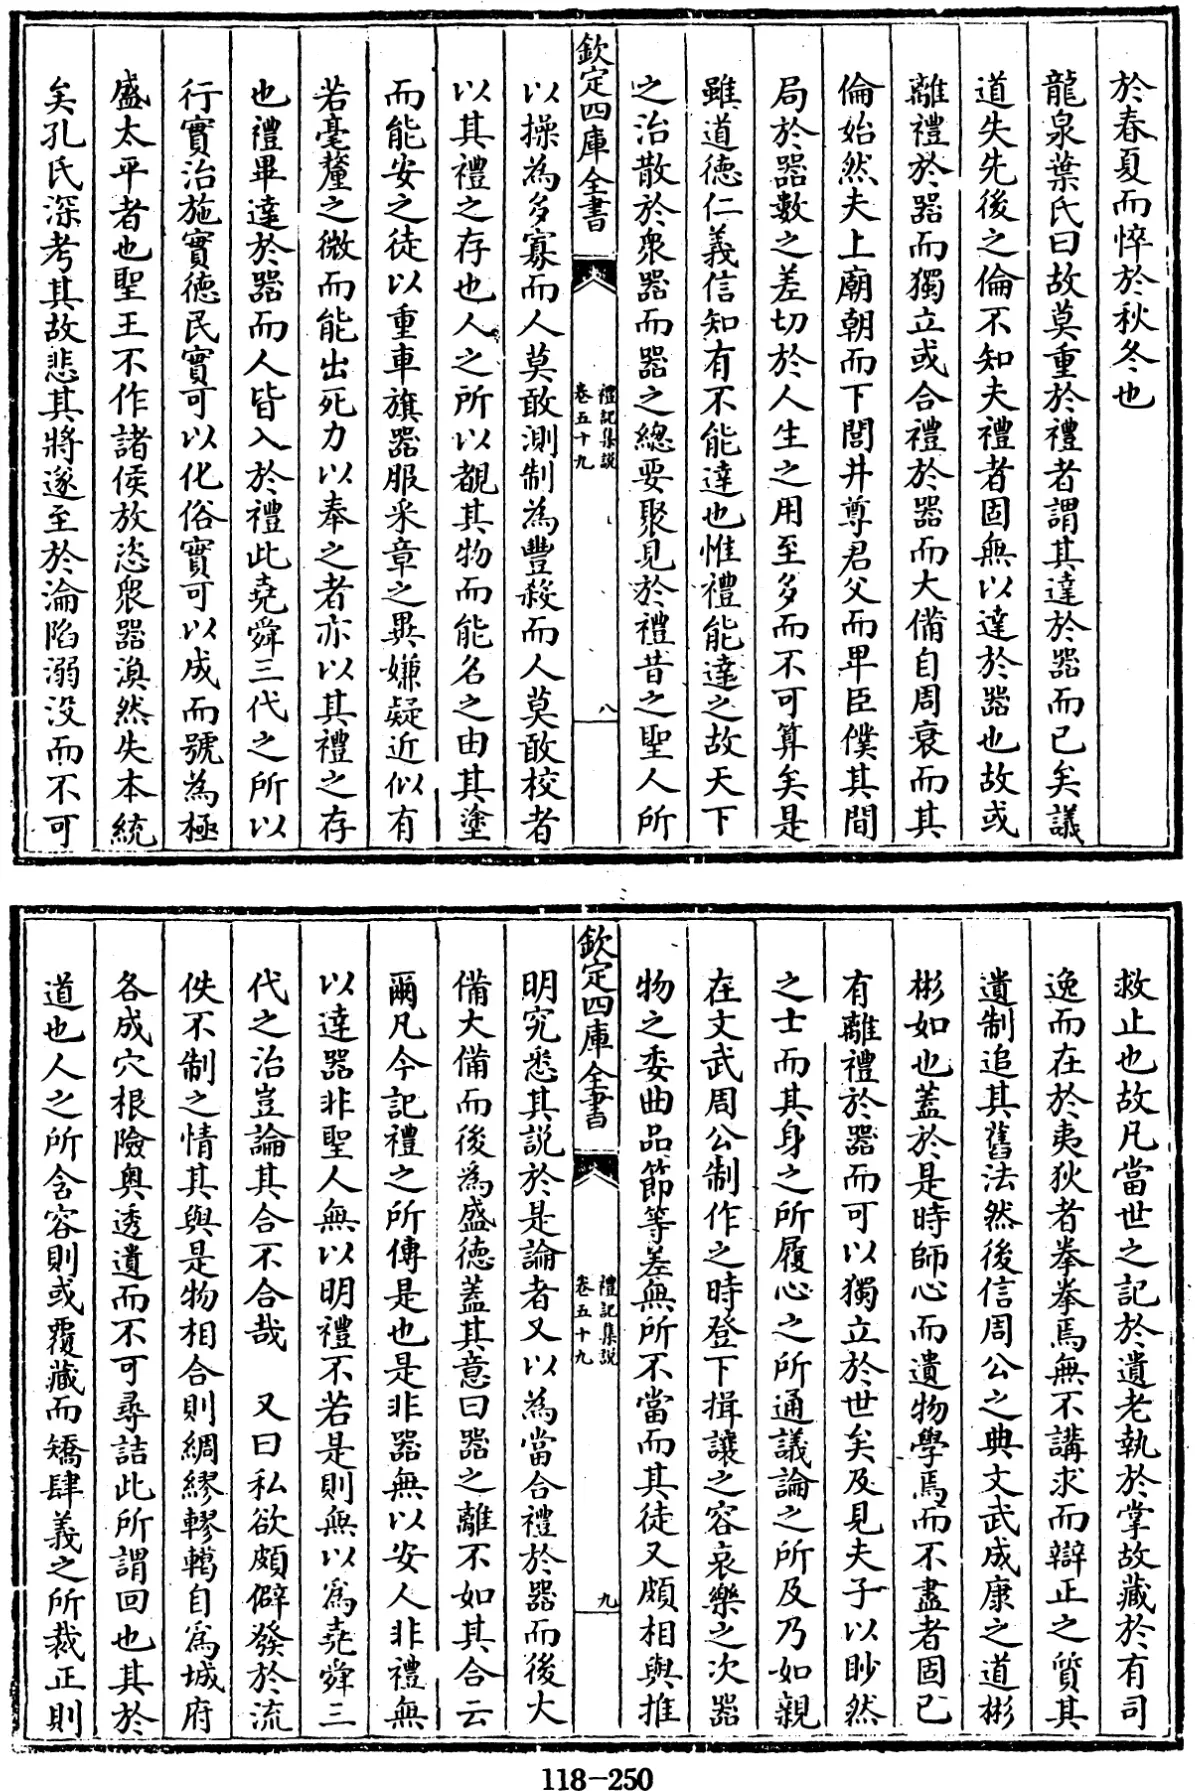 於春夏而悴於秋冬也
龍泉葉氏曰故莫重於禮者謂其達於器而已矣議
道失先後之倫不知夫禮者固無以達於器也故或
離禮於器而獨立或合禮於器而大備自周衰而其
倫始然夫上廟朝而下閭井尊君父而卑臣僕其間
局於器數之差切於人生之用至多而不可算矣是
雖道德仁義信知有不能達也惟禮能達之故天下
之治散於衆器而器之總要聚見於禮昔之聖人所
欽定四庫全書
禮記集說
卷五十九
八
以操為多寡而人莫敢測制為豐殺而人莫敢校者
以其禮之存也人之所以覩其物而能名之由其塗
而能安之徒以重車旗器服采章之異嫌疑近似有
若毫釐之微而能出死力以奉之者亦以其禮之存
也禮畢達於器而人皆入於禮此堯舜三代之所以
行實治施實德民實可以化俗實可以成而號為極
盛太平者也聖王不作諸侯放恣衆器渙然失本統
矣孔氏深考其故悲其將遂至於淪陷溺没而不可
救止也故凡當世之記於遺老執於掌故藏於有司
逸而在於夷狄者拳拳焉無不講求而辯正之質其
遺制追其舊法然後信周公之典文武成康之道彬
彬如也蓋於是時師心而遺物學焉而不盡者固已
有離禮於器而可以獨立於世矣及見夫子以眇然
之士而其身之所履心之所通議論之所及乃如親
在文武周公制作之時登下揖讓之容哀樂之次器
物之委曲品節等差無所不當而其徒又頗相與推
欽定四庫全書
禮記集說
卷五十九
九
明究悉其說於是論者又以為當合禮於器而後大
備大備而後為盛德蓋其意曰器之離不如其合云
爾凡今記禮之所傳是也是非器無以安人非禮無
以達器非聖人無以明禮不若是則無以為堯舜三
代之治豈論其合不合哉　又曰私欲頗僻發於流
佚不制之情其與是物相合則綢繆轇轕自為城府
各成穴根險奥透遺而不可尋詰此所謂回也其於
道也人之所含容則或覆藏而矯肆義之所裁正則
118-250